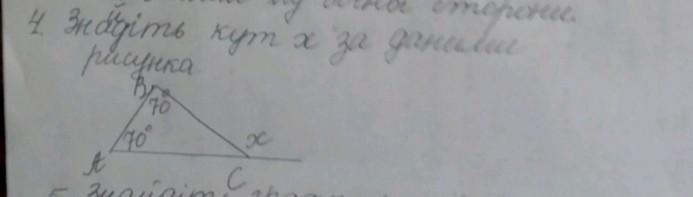 сторони.
4. Знайдіть кут x за даними
рисунка
B
70°
70°
x
A
C
5. Знайдіть